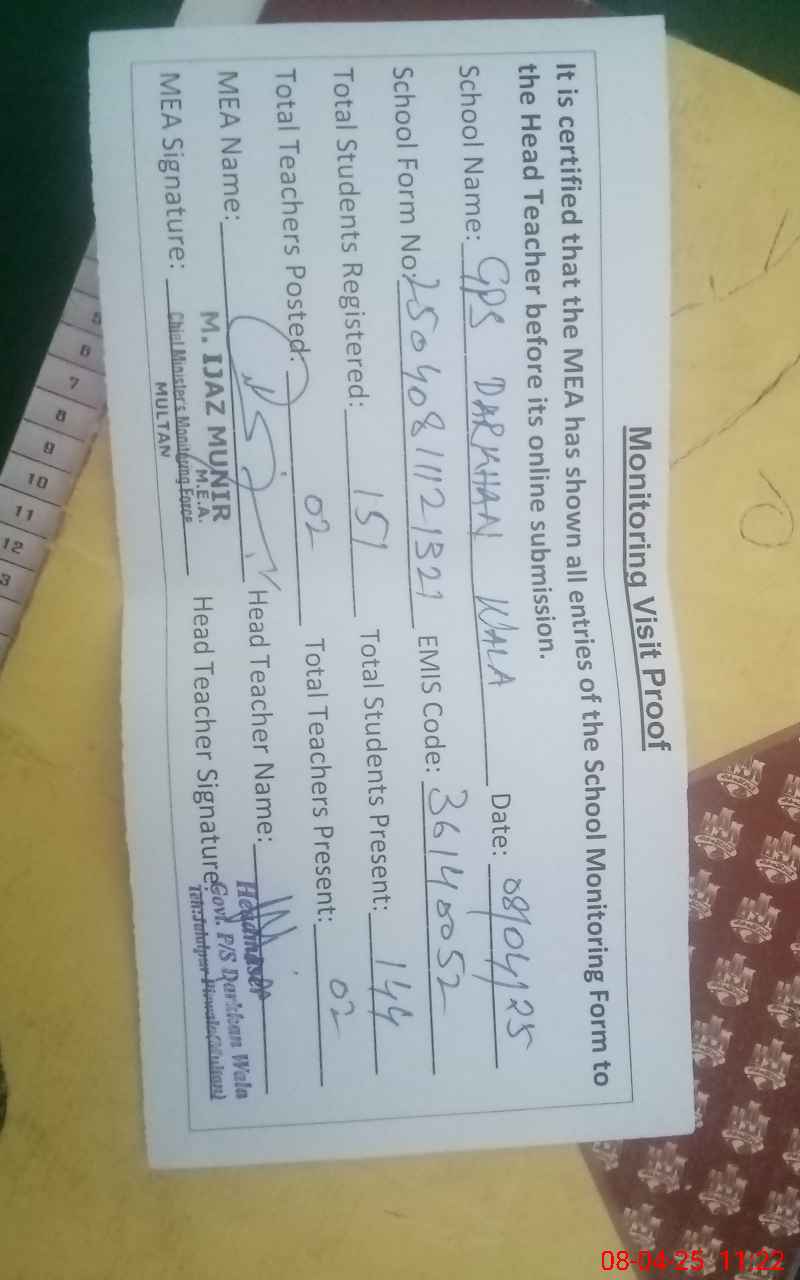 Monitoring Visit Proof
It is certified that the MEA has shown all entries of the School Monitoring Form to
the Head Teacher before its online submission.
School Name: GPS DARKHAN WALA Date: 08/04/25
School Form No: 25040811121321 EMIS Code: 36140052
Total Students Registered: 151 Total Students Present: 144
Total Teachers Posted: 02 Total Teachers Present: 02
MEA Name: Head Teacher Name:
MEA Signature: Head Teacher Signature:
M. IJAZ MUNIR
M.E.A.
Chief Minister's Monitoring Force
MULTAN
Headmaster
Govt. P/S Darkhan Wala
Teh: Jalalpur Pirwala (Multan)
5
6
7
8
9
10
11
12
3
08-04-25 11:22